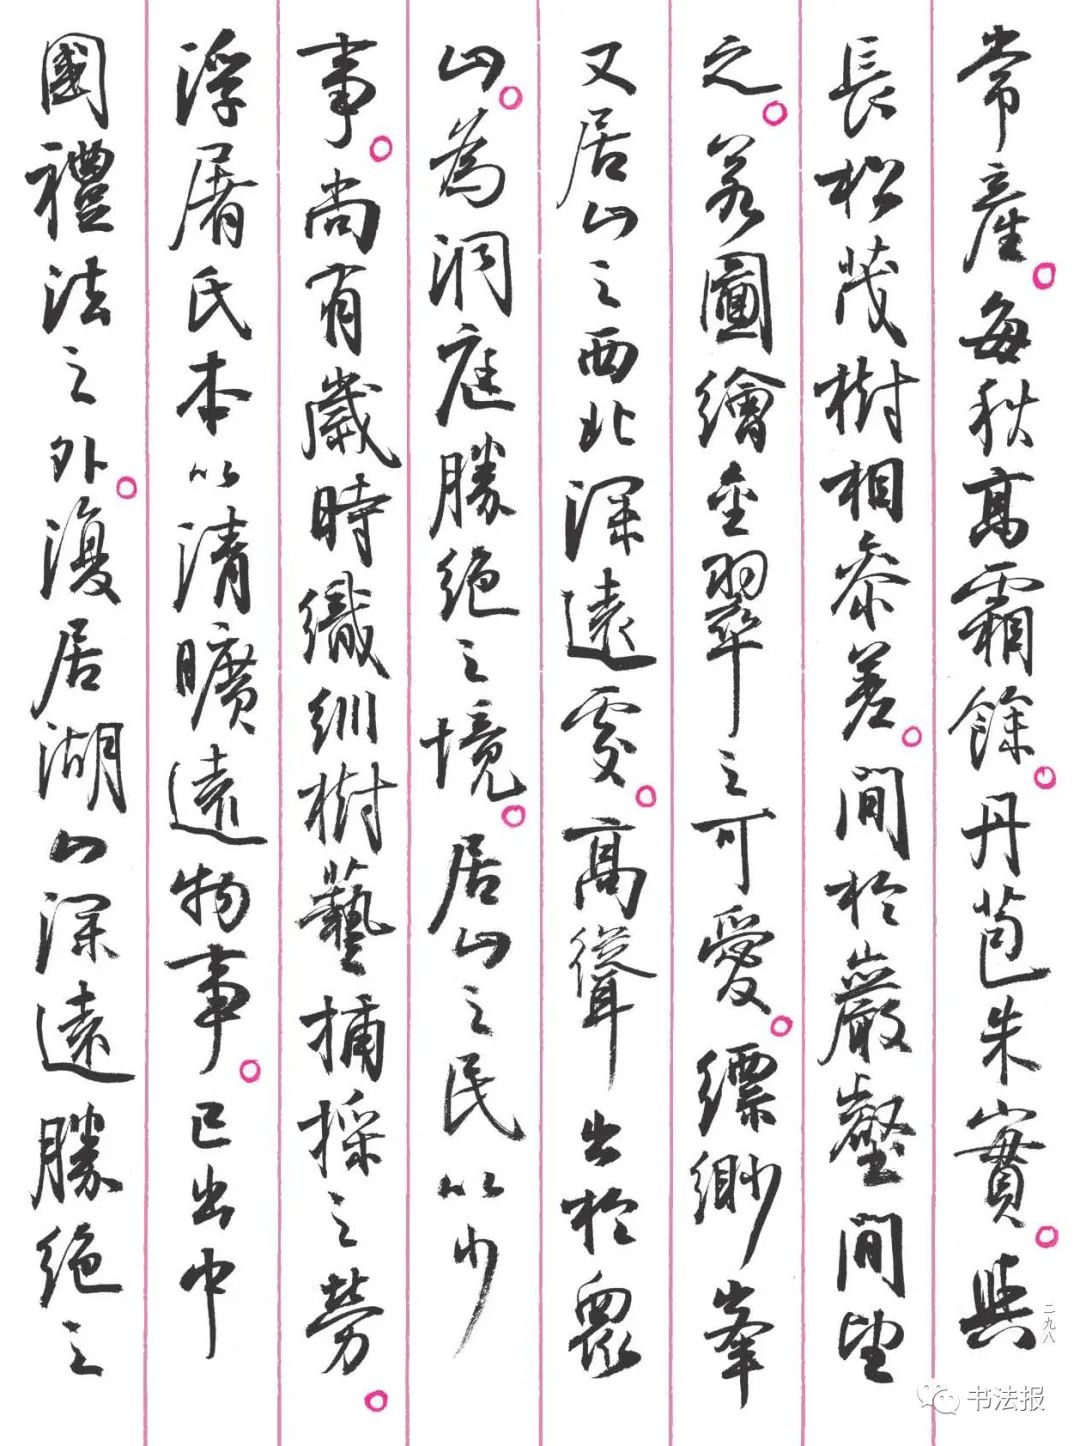 常產。每秋高霜餘。丹苞朱實。與
長松茂樹相參差。間於巖壑間望
之。若圖繪金翠之可愛。縹緲峯
又居山之西北深遠處。高聳出於眾
山。為洞庭勝絕之境。居山之民以少
事。尚有歲時織紃樹藝捕採之勞。
浮屠氏本以清曠遠物事。已出中
國禮法之外。復居湖山深遠勝絕之
二九八
书法报